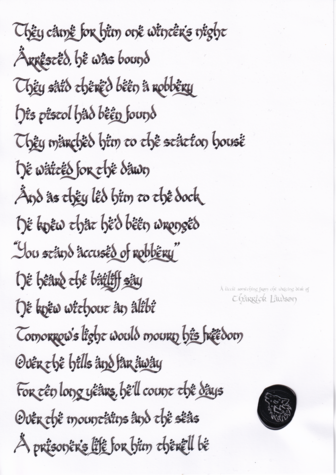 They came for him one winter's night
Arrested, he was bound
They said there'd been a robbery
His pistol had been found
They marched him to the station house
He waited for the dawn
And as they led him to the dock
He knew that he'd been wronged
"You stand accused of robbery"
He heard the bailiff say
He knew without an alibi
Tomorrow's light would mourn his freedom
Over the hills and far away
For ten long years, he'll count the days
Over the mountains and the seas
A prisoner's life for him there'll be